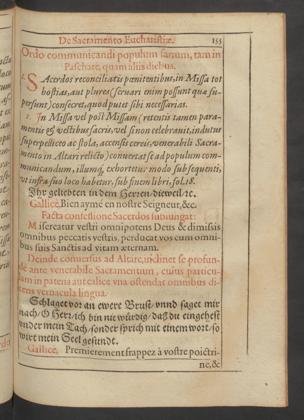 De Sacramento Eucharistiæ. 155
Ordo communicandi populum sanum, tam in
Paschate, quam aliis diebus.
1. SAcerdos reconciliatis pœnitentibus, in Missa tot
hostias, aut plures (servari enim possunt quæ su-
persunt) consecret, quod putet sibi necessarias.
2. In Missa vel post Missam (retentis tamen para-
mentis & vestibus sacris, vel si non celebravit, indutus
superpelliceo ac stola, accensis cereis, venerabili Sacra-
mento in Altari relicto) convertat se ad populum com-
municandum, illumq; exhortetur modo subsequenti,
ut infra suo loco habetur, sub finem libri, fol. 18.
Ihr geliebten in dem Herren dieweil ꝛc.
Gallicè. Bien aymé en nostre Seigneur, &c.
Facta confessione Sacerdos subiungat:
Misereatur vestri omnipotens Deus & dimissis
omnibus peccatis vestris, perducat vos cum omni-
bus suis Sanctis ad vitam æternam.
Deinde conversus ad Altare, inclinet se profun-
de ante venerabile Sacramentum, cuius particu-
lam in patena aut calice una ostendat omnibus di-
cens vernacula lingua.
Schlaget vor an ewere Brust, vnnd saget mir
nach, O Herr, ich bin nit würdig, daß du eingehest
vnder mein Tach, sonder sprich mit einem wort, so
wirt mein Seel gesundt.
Gallicè. Premierement frappez à vostre poictri-
ne, &